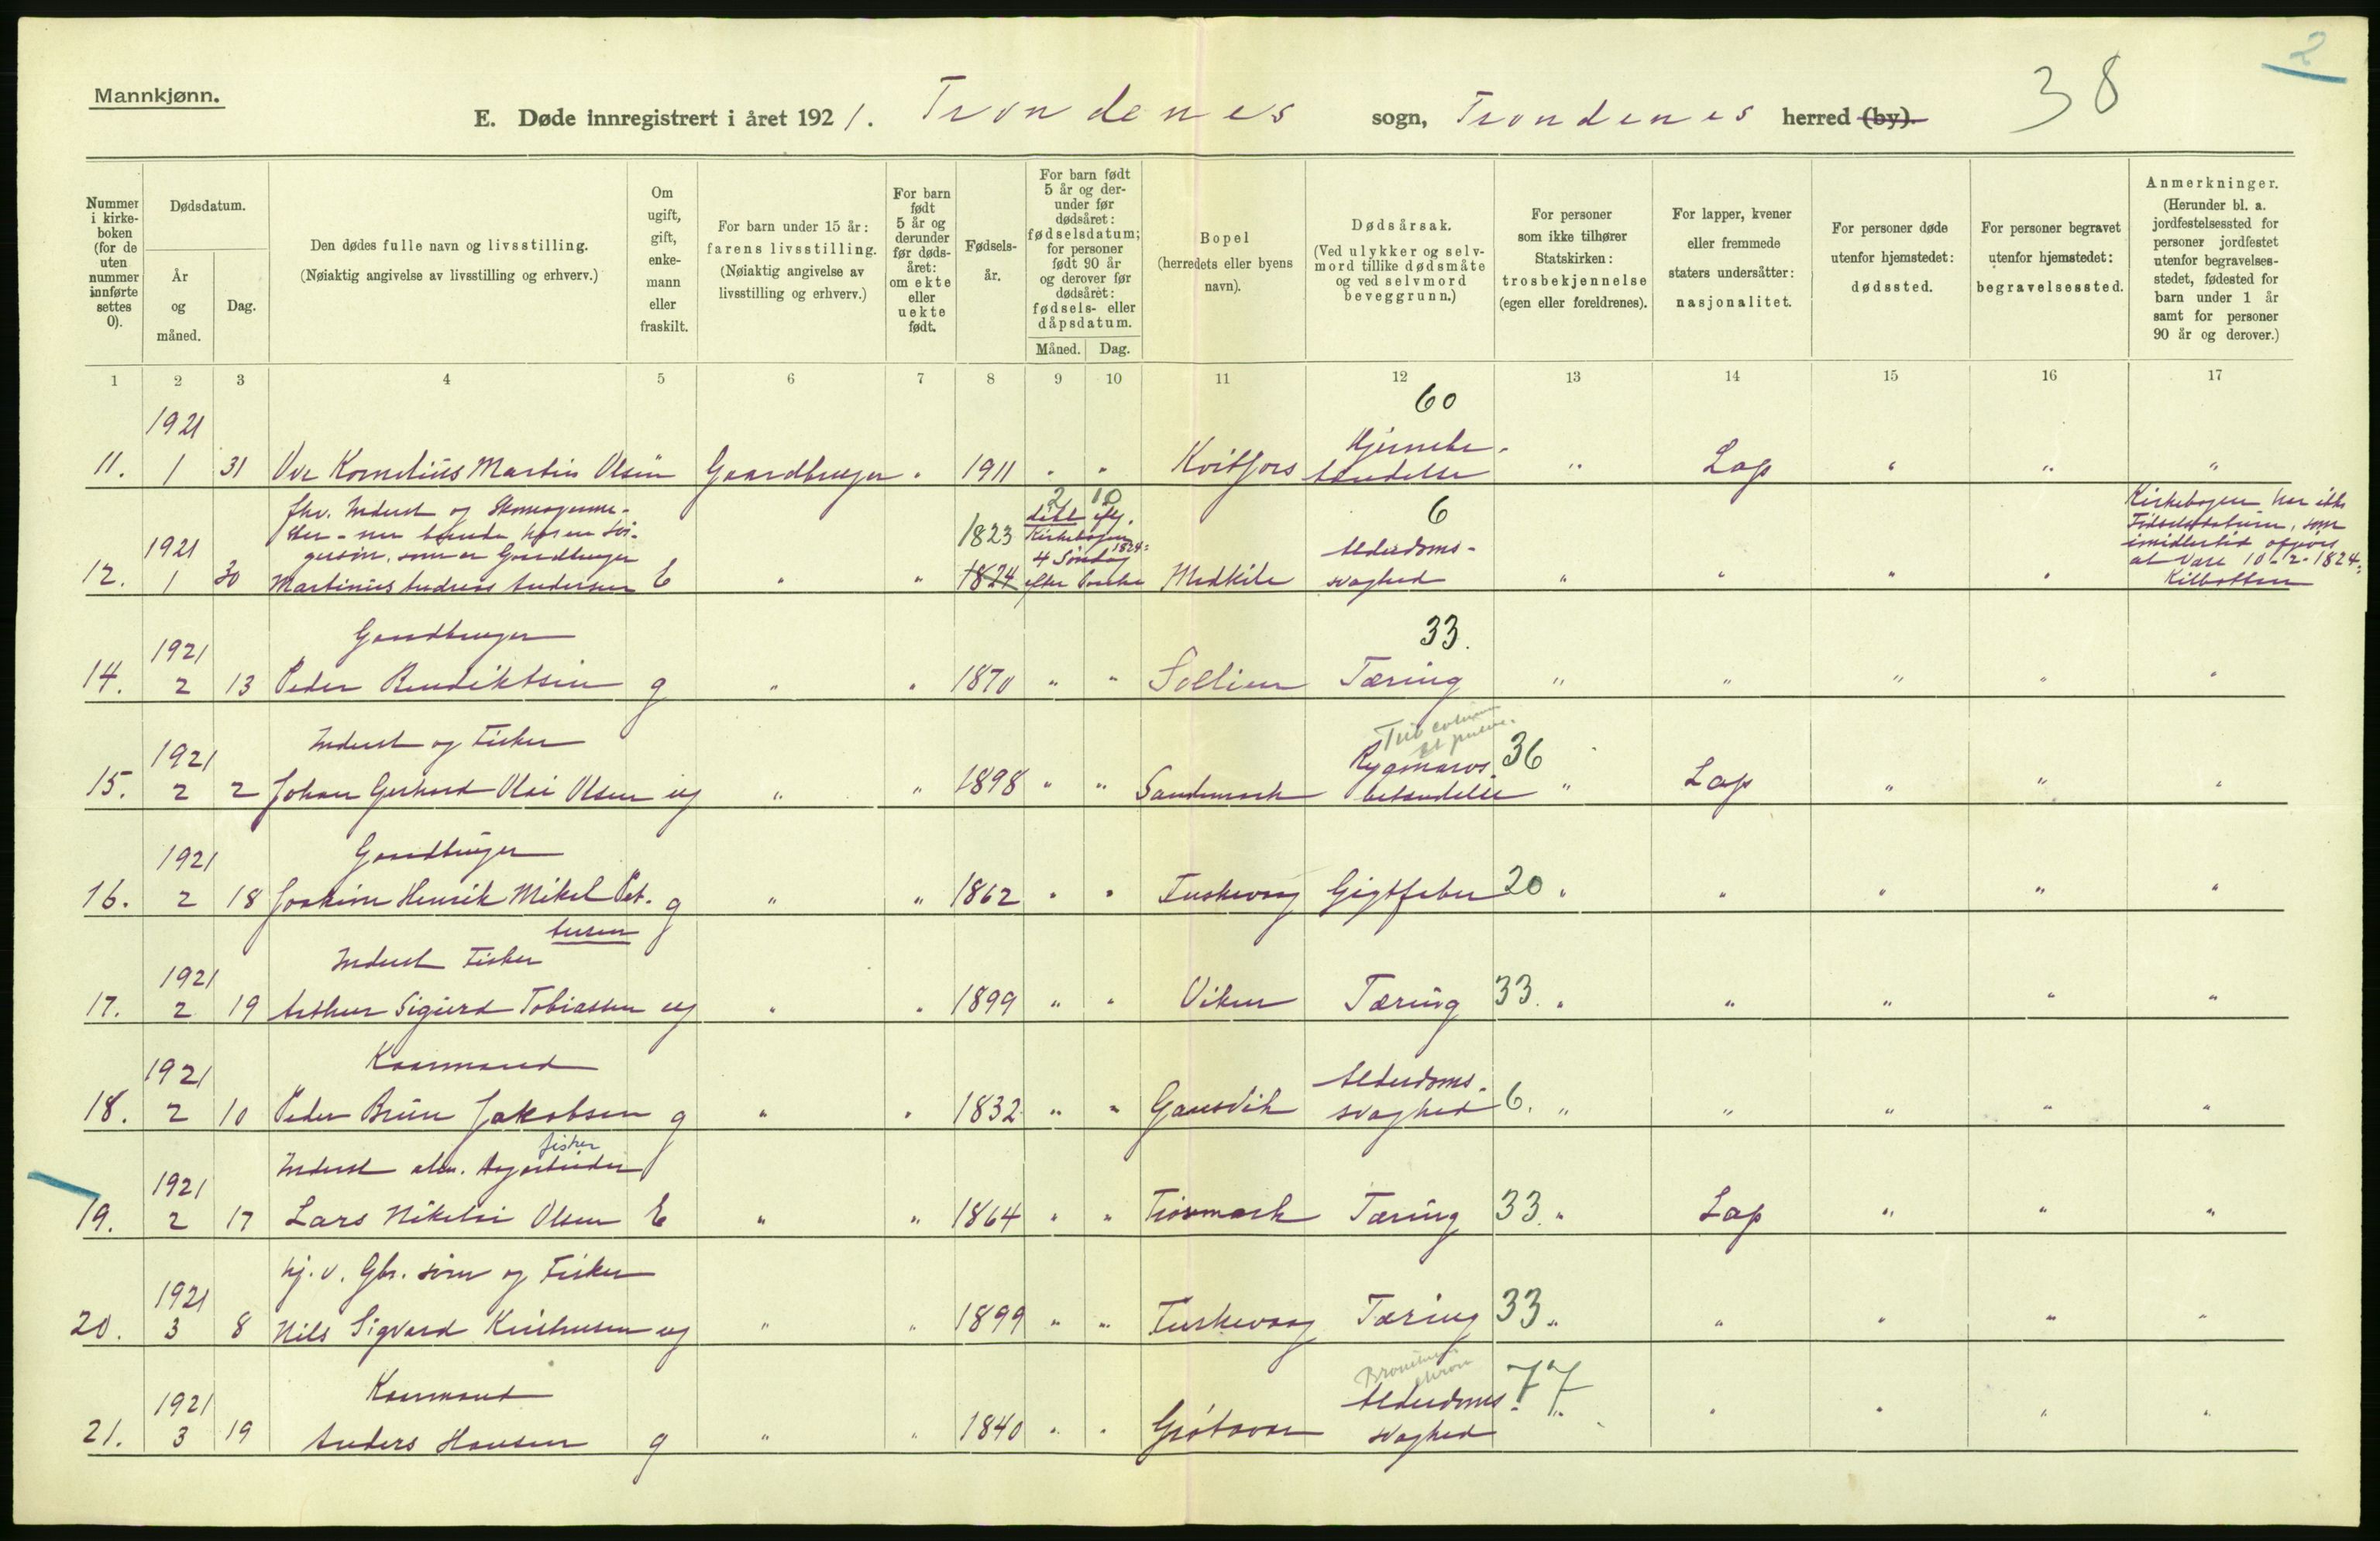 2
Mannkjønn.
38
E. Døde innregistrert i året 1921. Trondenes sogn, Trondenes herred (by).
Nummer i kirkeboken (for de uten nummer innførte settes 0).
Dødsdatum.
År og måned.
Dag.
Den dødes fulle navn og livsstilling.
(Nøiaktig angivelse av livsstilling og erhverv.)
Om ugift, gift, enkemann eller fraskilt.
For barn under 15 år: farens livsstilling.
(Nøiaktig angivelse av livsstilling og erhverv.)
For barn født 5 år og derunder før dødsåret: om ekte eller uekte født.
Fødselsår.
For barn født 5 år og derunder før dødsåret: fødselsdatum; for personer født 90 år og derover før dødsåret: fødsels- eller dåpsdatum.
Måned. Dag.
Bopel (herredets eller byens navn).
Dødsårsak.
(Ved ulykker og selvmord tillike dødsmåte og ved selvmord beveggrunn.)
For personer som ikke tilhører Statskirken: trosbekjennelse (egen eller foreldrenes).
For lapper, kvener eller fremmede staters undersåtter: nasjonalitet.
For personer døde utenfor hjemstedet: dødssted.
For personer begravet utenfor hjemstedet: begravelsessted.
Anmerkninger.
(Herunder bl. a. jordfestelsessted for personer jordfestet utenfor begravelsesstedet, fødested for barn under 1 år samt for personer 90 år og derover.)
1 2 3 4 5 6 7 8 9 10 11 12 13 14 15 16 17
60
1921 Hjernebe-
11. 1 31 Ove Kornelius Martin Olsen Gaardbruger " 1911 " " Kvitfors tændelse " Lap " " "
fhv. Inderst og 2 10 6 Kirkebogen har ikke
1823 Fødselsdatum, som
1921 gersøn, som er Gaardbruger 4 Søndag 1824: Alderdoms- imidlertid opgives
at være 10-2-1824:
12. 1 30 Martinius Andreas Andersen E " " 1824 efter Medkile svaghed " " " " Kilbotten
Gaardbruger 33.
1921
14. 2 13 Peder Bendiktsen g " " 1870 " " Sollien Tæring " " " " "
Inderst og Fisker
1921 Rygmarvs- 36
15. 2 2 Johan Gerhard Olai Olsen ug " " 1898 " " Sandmark betændelse " Lap " " "
Gaardbruger
1921
16. 2 18 Joakim Henrik Mikal Pet- g " " 1862 " " Fuskevaag Gigtfeber 20 " " " " "
tersen
Inderst Fisker
1921
17. 2 19 Arthur Sigurd Tobiassen ug " " 1899 " " Viken Tæring 33. " " " " "
Kaarmand
1921 Alderdoms-
18. 2 10 Peder Brun Jakobsen g " " 1832 " " Gausvik svaghed 6. " " " " "
fisker
Inderst alm. Dagarbeider
1921
19. 2 17 Lars Nikolai Olsen E " " 1864 " " Trøvmark Tæring 33. " Lap " " "
hj. v. Gbr. søn og Fisker
1921
20. 3 8 Nils Sigvard ug " " 1899 " " Fuskevaag Tæring 33 " " " " "
Kaarmand
1921 Alderdoms- 77
21. 3 19 Anders Hansen g " " 1840 " " Grøtavær svaghed " " " " "